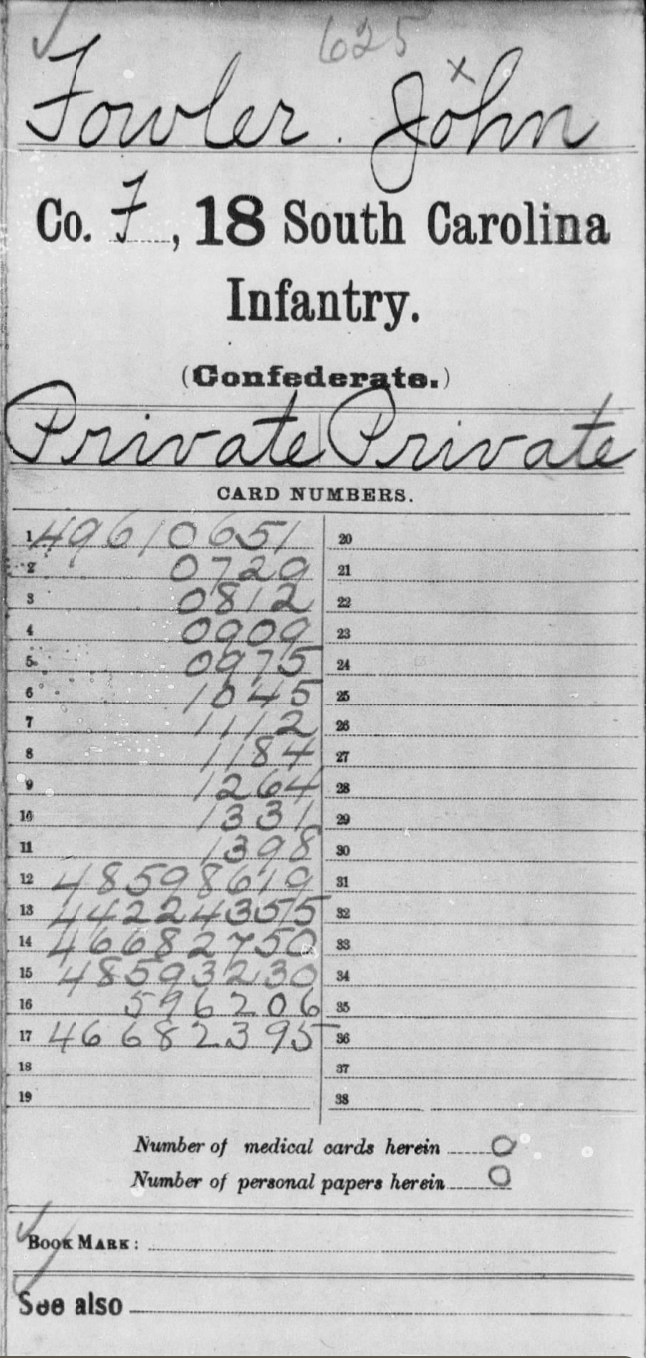 625
x
Fowler. John
Co. F, 18 South Carolina
Infantry.
(Confederate.)
Private Private
CARD NUMBERS.
1 49610651 20
2 0729 21
3 0812 22
4 0909 23
5 0975 24
6 1045 25
7 1112 26
8 1184 27
9 1264 28
10 1331 29
11 1398 30
12 48598619 31
13 44224355 32
14 46682750 33
15 48593230 34
16 596206 35
17 46682395 36
18 37
19 38
Number of medical cards herein 0
Number of personal papers herein 0
BOOK MARK:
See also